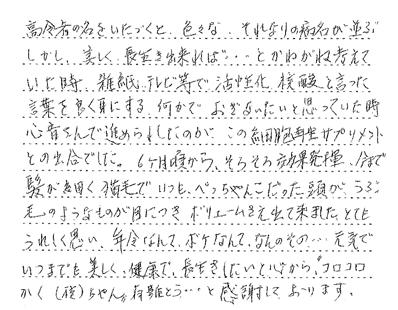 高令者の名をいたゞくと、色々な、それなりの病名が並ぶ
しかし、美しく、長生き出来れば・・・とかねがね考えて
いた時、雑紙、テレビ等で活性化、核酸と言った
言葉を良く耳にする。何かでおぎないたいと思っていた時
心音さんで進められたのが、この細胞再生サプリメント
との出合でした。6ヶ月頃から、そろそろ効果発揮、今まで
髪が細く猫毛でいつも、ペッちゃんこだった頭が、うぶ
毛のようなものが目につき ボリュームさえ出て来ました。とても
うれしく思い、年令なんて、ボケなんて、なんのその・・・元気で
いつまでも美しく、健康で、長生きしたいと心から、コロコロ
かく(後)ちゃん 有難とう・・・と感謝しております。